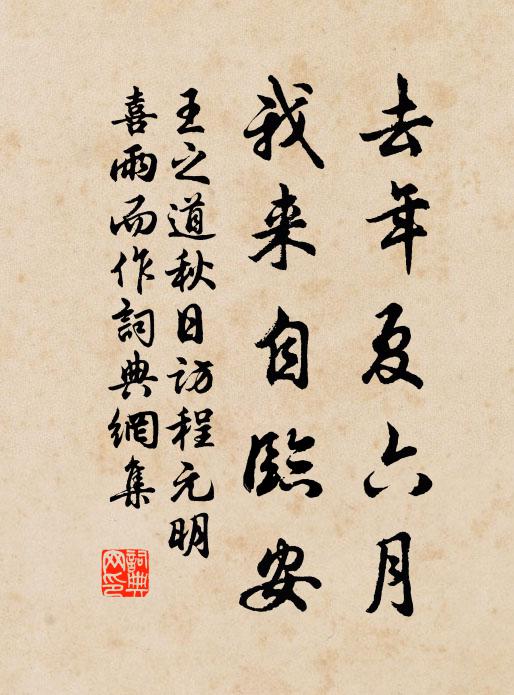 去年夏六月
我来自臨安
王之道秋日访程元明
喜雨而作詞典網集
詞典
网印